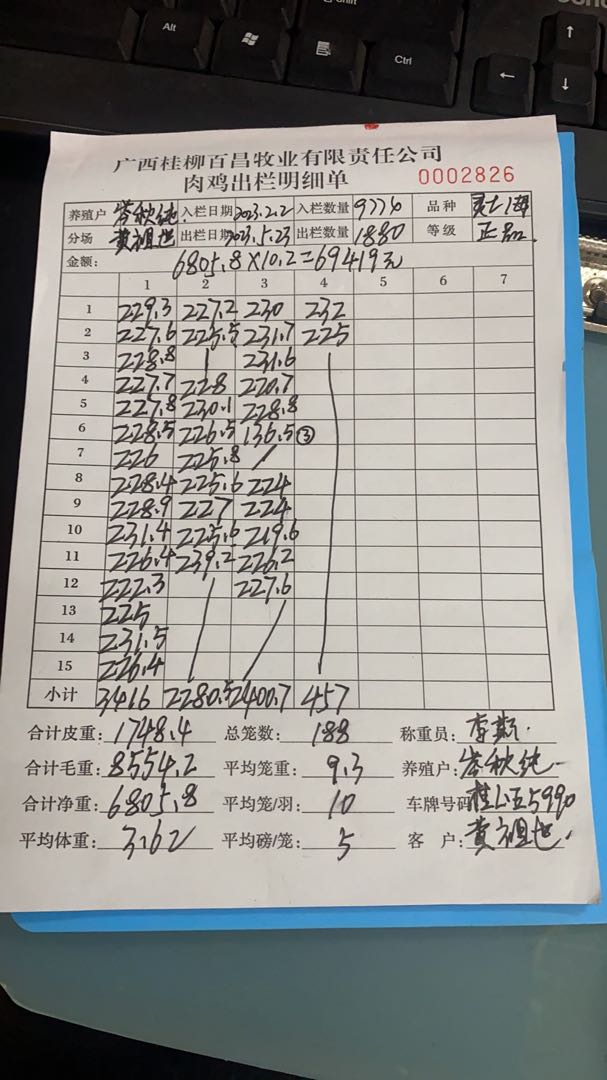 Alt
Ctrl
广西桂柳百昌牧业有限责任公司
肉鸡出栏明细单 0002826
养殖户 秋纯 入栏日期 2023.2.2 入栏数量 品种
分场 黄祖世 出栏日期 2023.5.23 出栏数量 1880 等级 正品
金额: 6805.8×10.2=69419元
1 2 3 4 5 6 7
1 229.3 227.2 230 232
2 227.6 225.5 231.7 225
3 228.8 231.6
4 227.7 228 220.7
5 227.8 230.1 228.8
6 228.5 226.5 136.5 ③
7 226 225.8
8 228.4 225.6 224
9 228.9 227 224
10 231.4 225.6 219.6
11 226.4 239.2 226.2
12 222.3 227.6
13 225
14 231.5
15 226.4
小计 3416 2280.5 2400.7 457
合计皮重: 1748.4 总笼数: 188 称重员: 李
合计毛重: 8554.2 平均笼重: 9.3 养殖户: 秋纯
合计净重: 6805.8 平均笼/羽: 10 车牌号码: 桂 55990
平均体重: 3.62 平均磅/笼: 5 客 户: 黄祖世